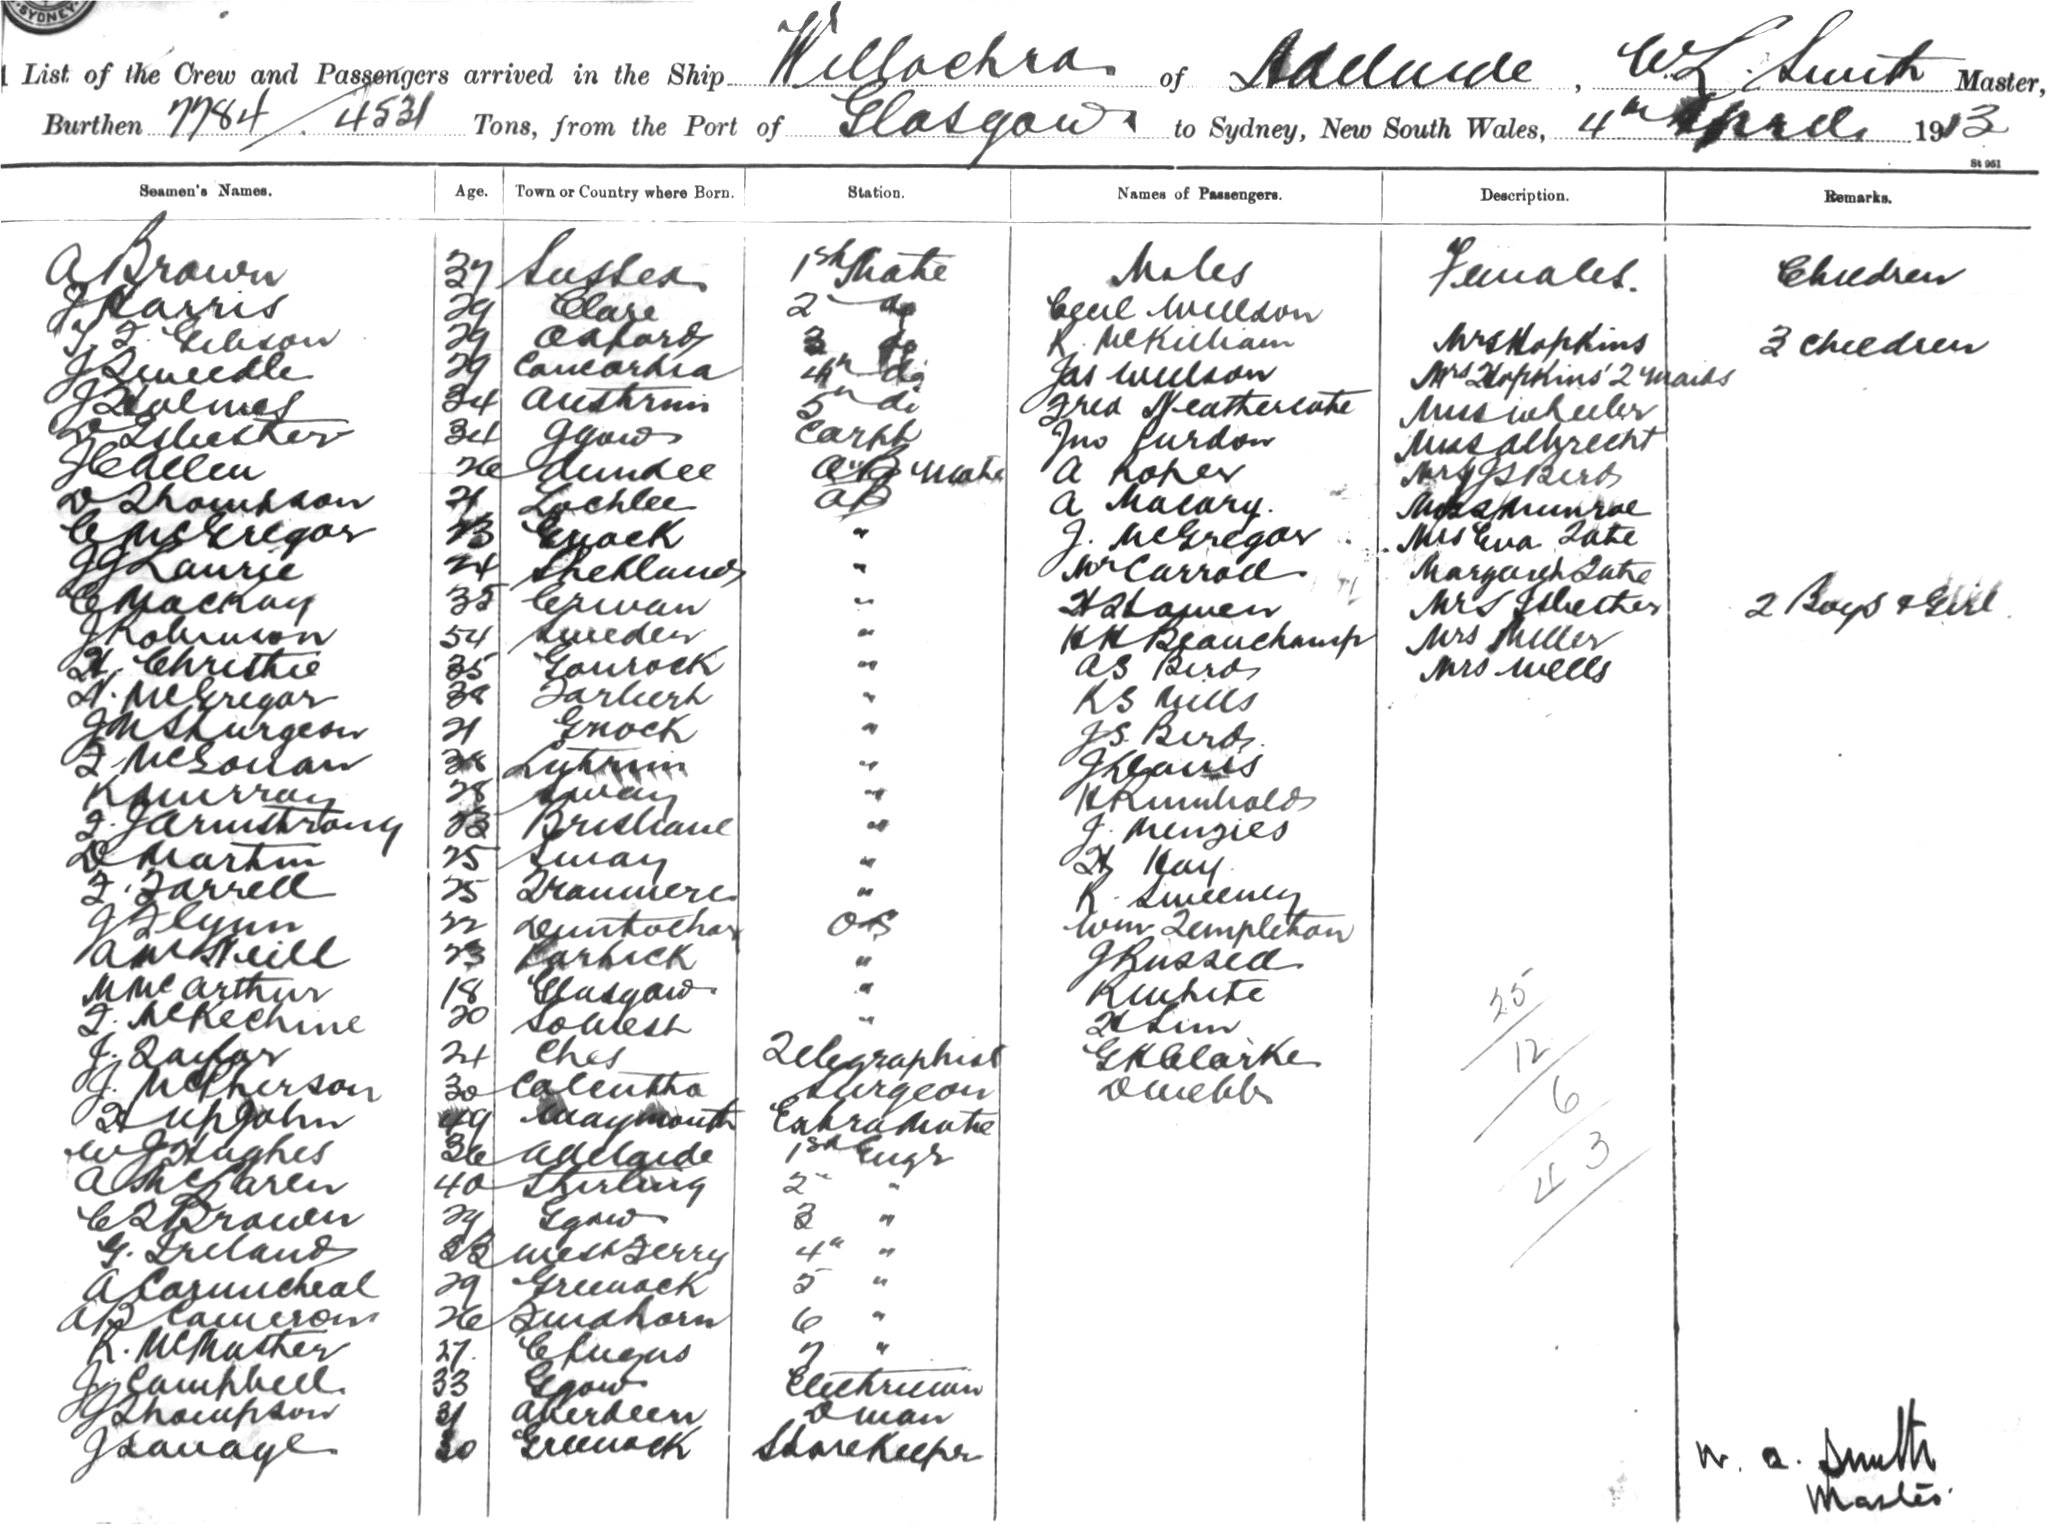 SYDNEY
List of the Crew and Passengers arrived in the Ship Willochra of Adelaide, W. L. Smith Master,
Burthen 7784/4531 Tons, from the Port of Glasgow to Sydney, New South Wales, 4th April 1913
St 951
Seamen's Names. Age. Town or Country where Born. Station. Names of Passengers. Description. Remarks.
A Brown 37 Sussex 1st Mate Males Females. Children
J Harris 29 Clare 2 do Cecil Willson
T. F. Gibson 29 Oxford 3 do R. McKilliam Mrs Hopkins 3 Children
J Tweedle 29 Concordia 4th do Jas Willson Mrs Hopkins' 2 Maids
J Holmes 34 5th do Fred Neathercote Miss Wheeler
Isbester 34 Ggow Carptr Jno Curdon Miss Albrecht
J C Allen 26 Dundee A Roper Mrs J S Bird
D Thompson 21 Lochlee AB A Macary. Miss Munroe
C McGregor 23 Gnock " J. McGregor Mrs Eva Tate
J J Laurie 24 Shetland " Mr Carroll Margaret Tate
C Mackay 35 Girvan " H Howen Mrs Isbester 2 Boys & Girl
J Robinson 54 Sweden " H H Beauchamp Mrs Miller
H. Christie 35 Gourock " A S Bird Mrs Wells
N. McGregor 38 Tarbert " R S Mills
J M Sturgeon 21 Gnock " J S. Bird
F McGowan 38 " J Davis
R Murray 28 Sway " H Rumbold
F. J Armstrong 23 Brisbane " J. Menzies
D Martin 25 Sway " H Hay
F. Farrell 25 Tranmere " R. Sweeney
J Flynn 22 Duntocher OS Wm Templeton
A McNeill 23 Partick " J Russell
M McArthur 18 Glasgow " R White 25
F. McKechnie 20 Solwest " H Sim
J. Taylor 24 Ches Telegraphist G H Clarke 12
J. McPherson 30 Calcutta Surgeon D Webb 6
H Upjohn 49 Waymouth Extra Mate
W J Hughes 36 Adelaide 1st Engr 43
A McLaren 40 Stirling 2 "
C T Brown 29 Ggow 3 "
G. Ireland 33 West Ferry 4th "
A Carmicheal 29 Greenock 5 "
A B Cameron 26 Findhorn 6 "
R. McMaster 27. 7 "
J. Campbell 33 Ggow Electrician
J Thompson 31 Aberdeen Dman
J Savage 30 Greenock Storekeeper
W. L. Smith
Master